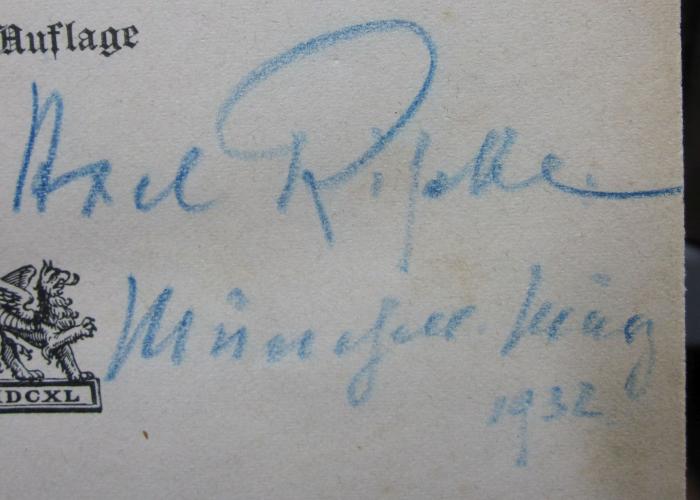 Auflage
Axel Ripke.
München. März
1932
MDCXL